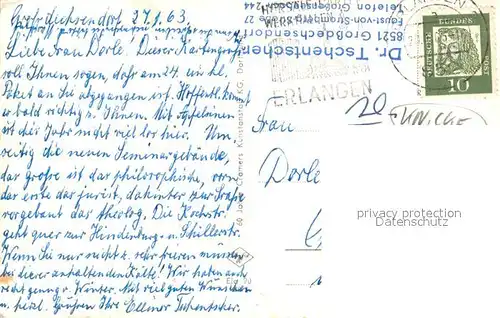 Großdechsendorf, 27.1.63.
Liebe Frau Dorle! Dieser Kartengruß
soll Ihnen sagen, daß am 24. ein kl.
Paket an Sie abgegangen ist. Hoffentl. kommt
es bald richtig zu Ihnen. Mit Äpfeln
ist dies Jahr nicht viel los hier. Um-
seitig die neuen Seminargebäude,
das große ist das philosophische, vorn
das erste das jurist., dahinter zur Straße
vorgebaut das theolog. Die Kochstr.
geht quer zur Hindenburg- u. Schillerstr.
Wenn Sie nur nicht zu sehr frieren müssen
bei dieser anhaltenden Kälte! Wir haben auch
recht genug v. Winter. Mit viel guten Wünschen
u. herzl. Grüßen Ihre Ellinor Tschentscher.
Dr. Tschentscher
8521 Großdechsendorf
ERLANGEN
DEUTSCHE BUNDESPOST
10
20
Frau
FUNICKE
Dorle
60 Jahre Cramers Kunstanstalt KG, Dortmund
Elg 90
privacy protection